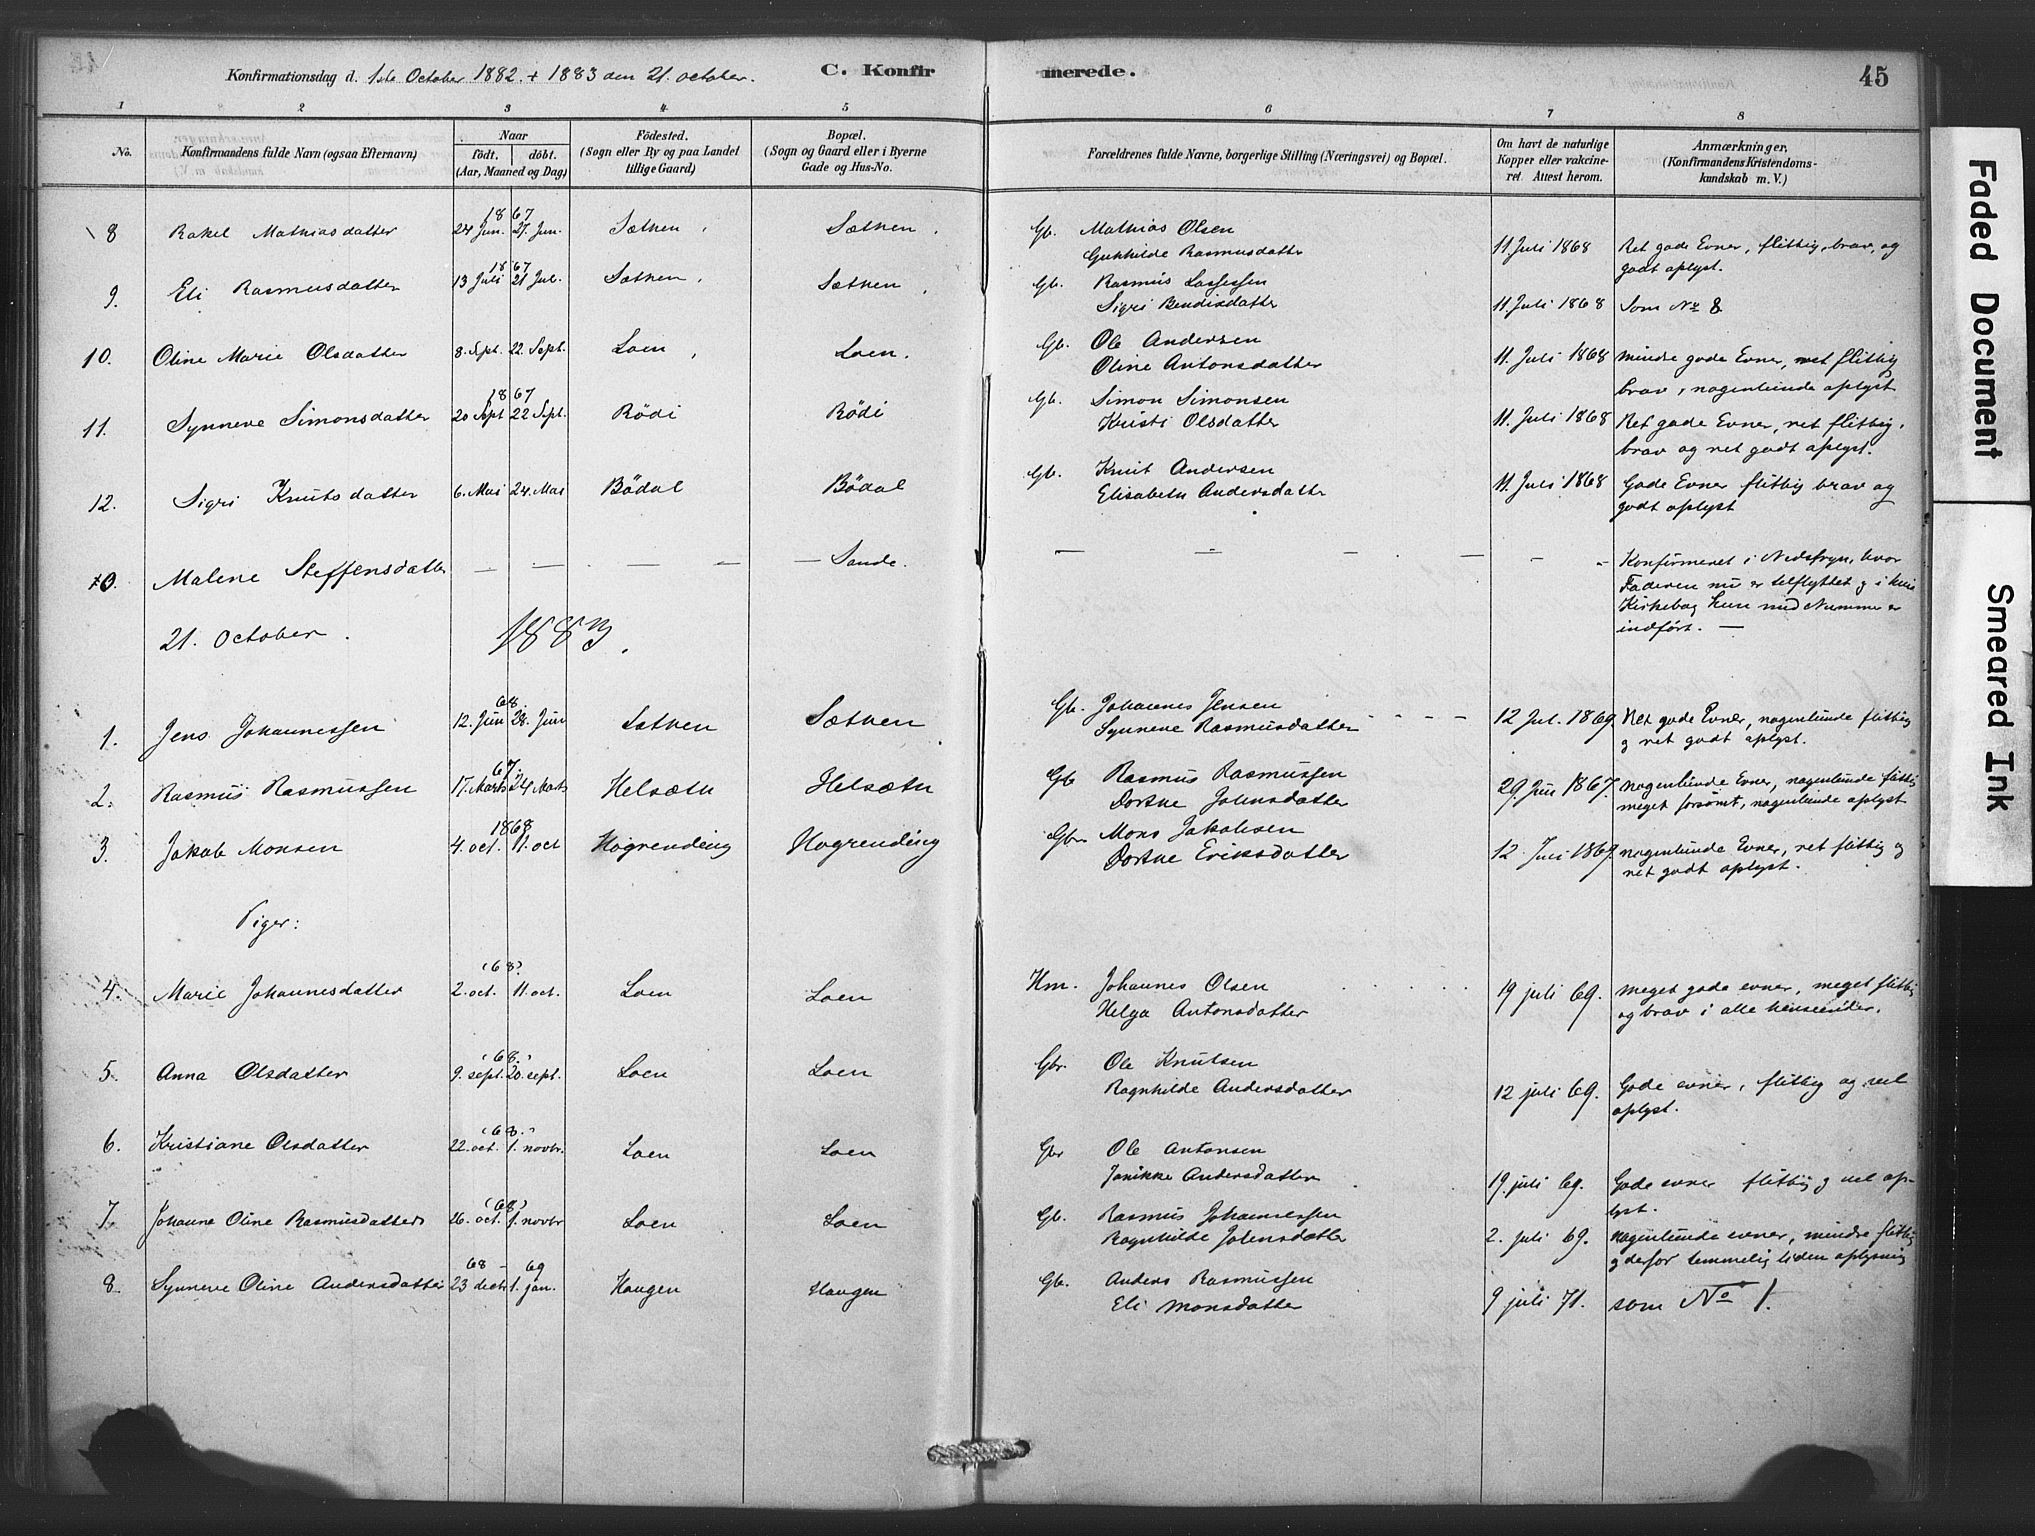 Konfirmationsdag d. 1ste October 1882. + 1883 den 21. october. C. Konfirmerede. 45
1 2 3 4 5 6 7 8
No. Konfirmandens fulde Navn (ogsaa Efternavn) Naar födt. döbt. (Aar, Maaned og Dag) Födested. (Sogn eller By og paa Landet tillige Gaard) Bopæl. (Sogn og Gaard eller i Byerne Gade og Hus-No. Forældrenes fulde Navne, borgerlige Stilling (Næringsvei) og Bopæl. Om havt de naturlige Kopper eller vakcineret. Attest herom. Anmærkninger, (Konfirmandens Kristendomskundskab m. V.)
1867
8 Rakel Mathiasdatter 24 Jun. 27. Jun. Sætren Sætren Gb. Mathias Olsen
Gunhilde Rasmusdatter 11. Juli 1868 Ret gode Evner, flittig, brav, og
godt oplyst.
1867
9. Eli Rasmusdatter 13 Juli 21 Jul. Sætren Sætren Gb. Rasmus Lassesen
Sigri Bendixdatter 11. Juli 1868 Som No 8
10. Oline Marie Olsdatter 8. Sept. 22. Sept. Loen Loen. Gb. Ole Andersen
Oline Antonsdatter 11. Juli 1868 mindre gode Evner, ret flittig
brav, nogenlunde oplyst
1867
11. Synneve Simonsdatter 20 Sept 22 Sept. Rödi Rödi Gb. Simon Simonsen
Kristi Olsdatter 11. Juli 1868 Ret gode Evner, ret flittig,
brav og ret godt oplyst.
12. Sigri Knutsdatter 6. Mai 24. Mai Bödal Bödal Gb. Knut Andersen
Elisabeth Andersdattr 11. Juli 1868 Gode Evner flittig brav og
godt oplyst
Malene Steffensdatter — — — — — — Sande. — — — — — — Konfirmeret i Nedstryn, hvor
Faderen nu er tilflyttet, og i hvis
Kirkebog hun med Nummer er
indført. —
21. October. 1883.
68.
1. Jens Johannessen 12. Jun 28. Jun Sætren Sætren Gb. Johannes Jensen
Synneve Rasmusdatter 12 Jul. 1869 Ret gode Evner, nogenlunde flittig
og ret godt oplyst.
67.
2. Rasmus Rasmussen 17. Marts 24 Marts Helsæth Helsæth Gb Rasmus Rasmussen
Dorthe Johnsdatter 29. Jun 1867. nogenlunde Evner, nogenlunde flittig
meget forsømt, nogenlunde oplyst
1868
3. Jakob Monsen 4. oct. 11. oct Hogrending Hogrending Gbr Mons Jakobsen
Dorthe Eriksdatter 12 Juli 1869. nogenlunde Evner, ret flittig og
ret godt oplyst.
Piger:
(68)
4. Marie Johannesdatter 2. oct. 11. oct. Loen Loen Hm. Johannes Olsen
Helga Antonsdatter 19 juli 69. meget gode evner, meget flittig
og brav i alle henseender.
(68.)
5. Anna Olsdatter 9. sept. 20. sept. Loen Loen Gbr. Ole Knutsen
Ragnhilde Andersdatter 12 juli 69. Gode evner, flittig og vel
oplyst.
(68.)
6. Kristiane Olsdatter 22. oct. 1. novbr. Loen Loen Gbr Ole Antonsen
Janikke Andersdatter 19. juli 69. Gode evner flittig og vel op-
lyst.
(68)
7. Johanne Oline Rasmusdatter 26. oct. 1. novbr Loen Loen Gb. Rasmus Johannessen
Ragnhilde Johnsdatter 2. juli 69. nogenlunde evner, mindre flittig
og derfor temmelig liden oplysning
68 - 69
8. Synneve Oline Andersdatter 23 decbr 1. jan. Haugen Haugen Gb. Anders Rasmussen
Eli Monsdatter 9 juli 71. som No 1.
Faded Document
Smeared Ink